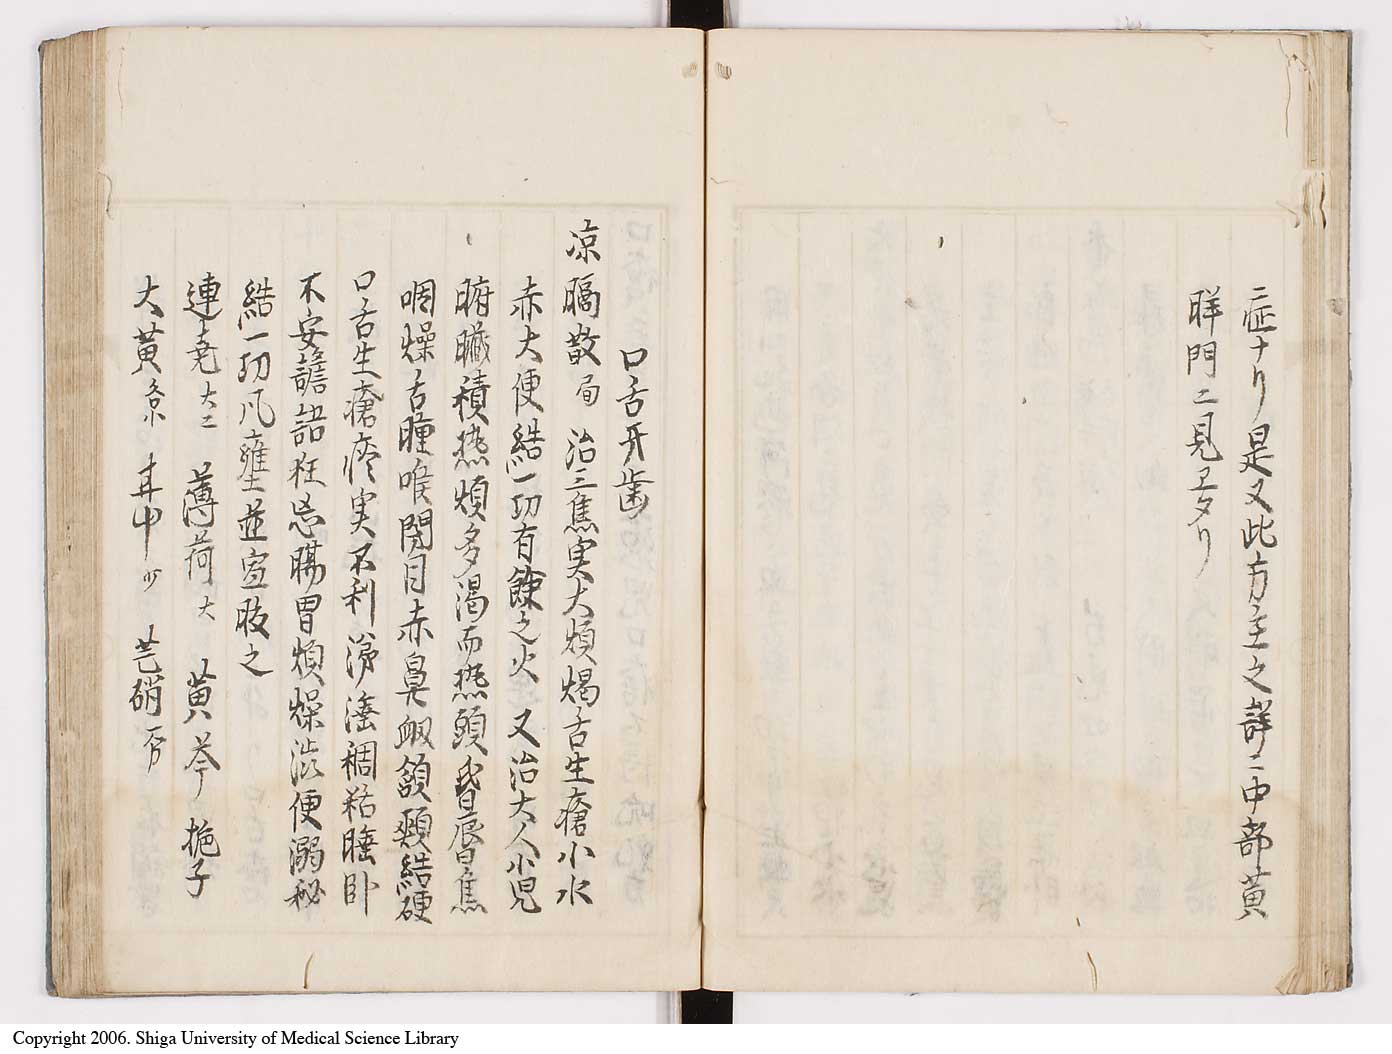 症ナリ是又此方主之詳ニ中部黄
胖門ニ見エタリ
口舌牙歯
凉膈散 局 治三焦実大煩渇舌生瘡小水
赤大便結一切有餘之火 又治大人小児
腑臓積热煩多渇而热頭昏唇焦
咽燥舌腫喉閉目赤鼻衂頷頬結硬
口舌生瘡痰実不利涕唾稠粘睡卧
不安譫語狂忘腸胃煩燥渋便溺秘
結一切凡壅並宜服之
連堯 大二 薄荷 大 黄芩 栀子
大黄 各 甘 中 少 芒硝